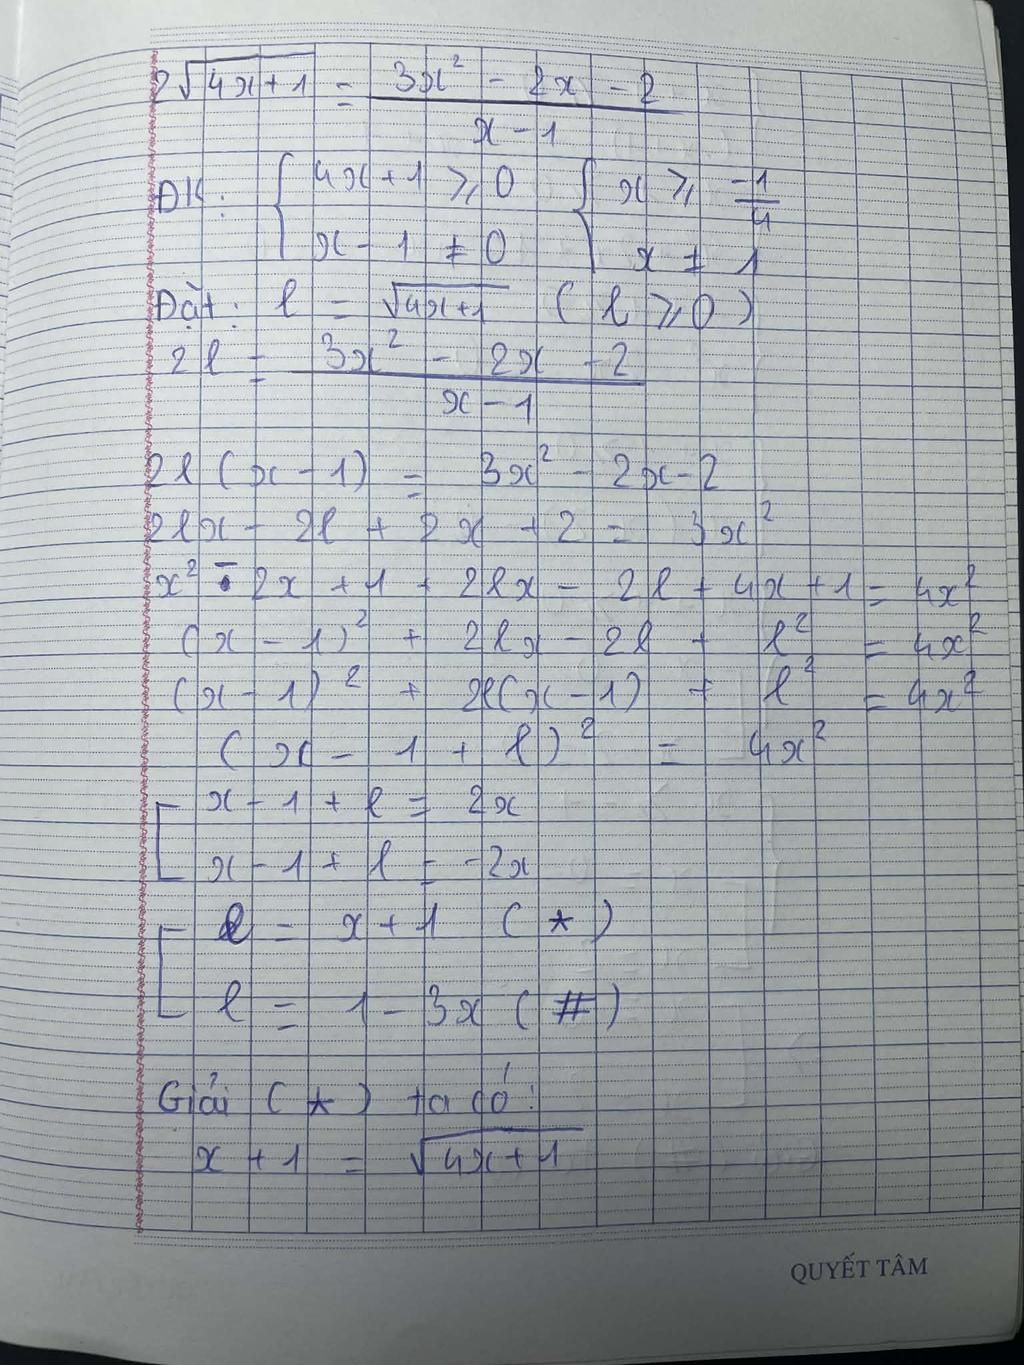 2√(4x+1) = (3x² - 2x - 2)/(x - 1)
ĐK: { 4x+1 ⩾ 0 { x ⩾ -1/4
x - 1 ≠ 0 x ≠ 1
Đặt: l = √(4x+1) ( l ⩾ 0 )
2l = (3x² - 2x - 2)/(x - 1)
2l (x - 1) = 3x² - 2x - 2
2lx - 2l + 2x + 2 = 3x²
x² - 2x + 1 + 2lx - 2l + 4x + 1 = 4x²
(x - 1)² + 2lx - 2l + l² = 4x²
(x - 1)² + 2l(x - 1) + l² = 4x²
(x - 1 + l)² = 4x²
[ x - 1 + l = 2x
x - 1 + l = -2x
[ l = x + 1 (*)
l = 1 - 3x (#)
Giải (*) ta có:
x + 1 = √(4x+1)
QUYẾT TÂM